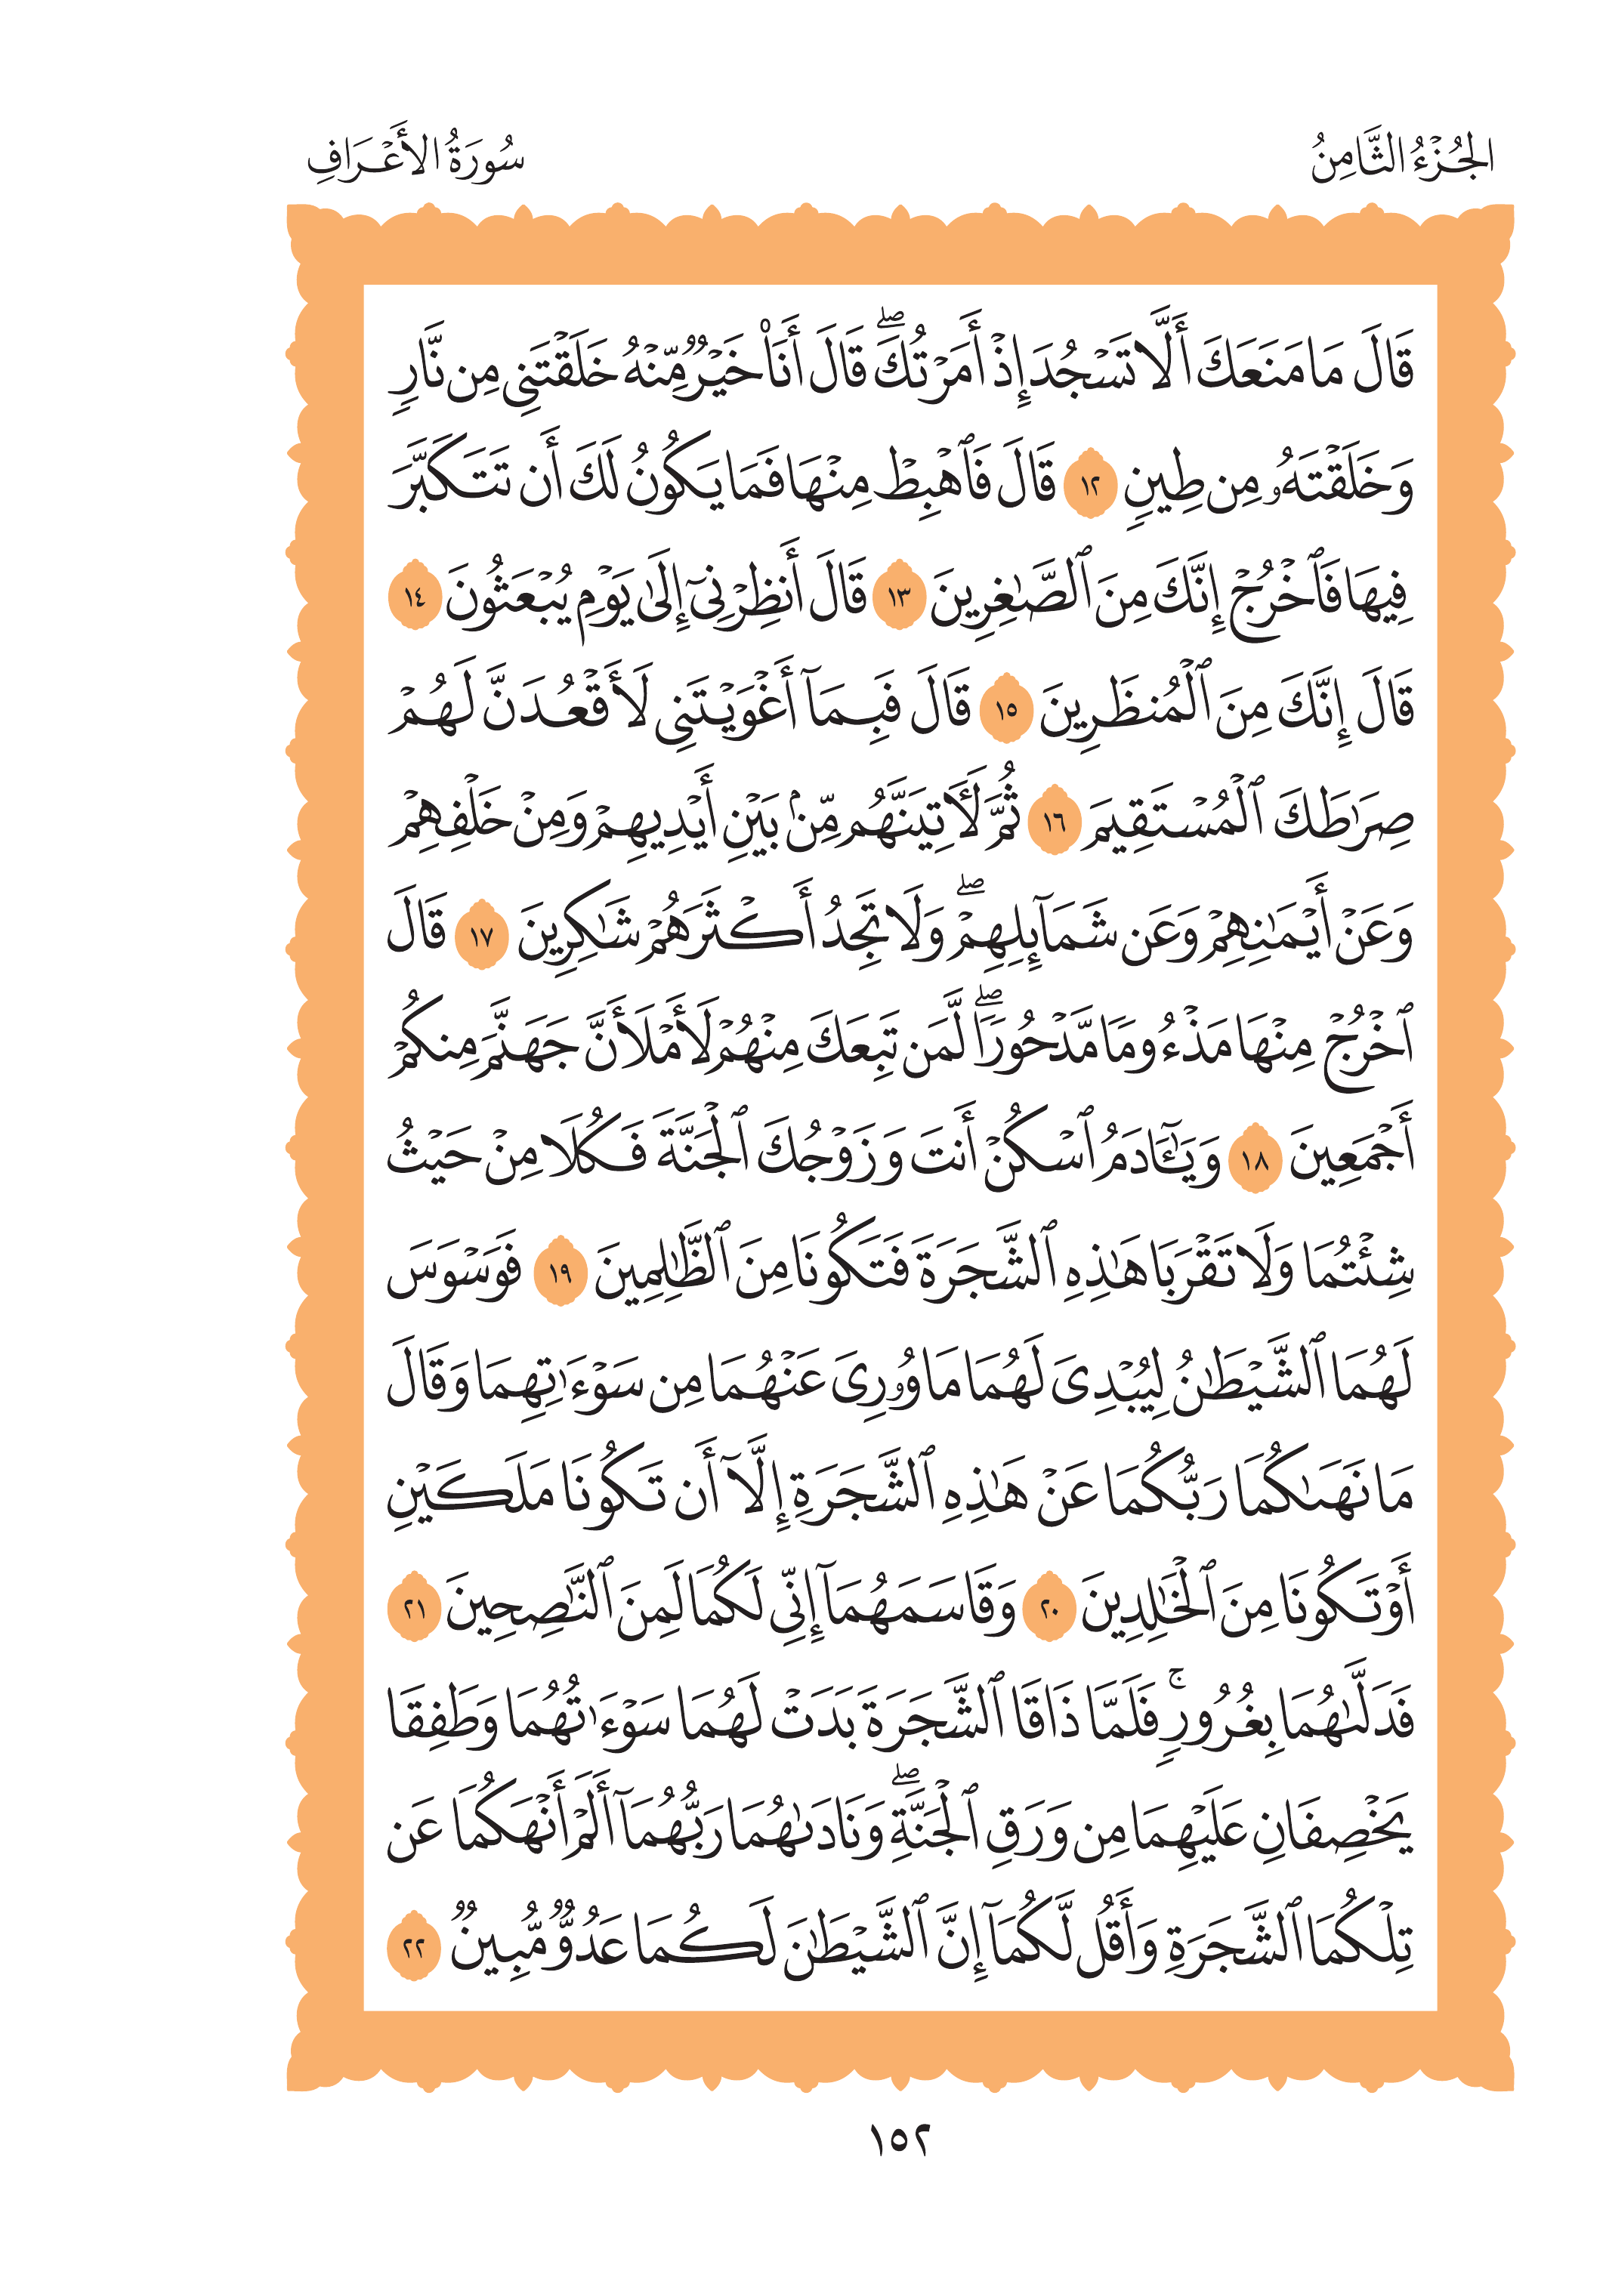 الجُزْءُ الثَّامِنُ
سُورَةُ الأَعْرَافِ
قَالَ مَا مَنَعَكَ أَلَّا تَسْجُدَ إِذْ أَمَرْتُكَۖ قَالَ أَنَا۠ خَيْرٌ مِّنْهُ خَلَقْتَنِى مِن نَّارٍ
وَخَلَقْتَهُۥ مِن طِينٍ ١٢ قَالَ فَٱهْبِطْ مِنْهَا فَمَا يَكُونُ لَكَ أَن تَتَكَبَّرَ
فِيهَا فَٱخْرُجْ إِنَّكَ مِنَ ٱلصَّٰغِرِينَ ١٣ قَالَ أَنظِرْنِىٓ إِلَىٰ يَوْمِ يُبْعَثُونَ ١٤
قَالَ إِنَّكَ مِنَ ٱلْمُنظَرِينَ ١٥ قَالَ فَبِمَآ أَغْوَيْتَنِى لَأَقْعُدَنَّ لَهُمْ
صِرَٰطَكَ ٱلْمُسْتَقِيمَ ١٦ ثُمَّ لَأٓتِيَنَّهُم مِّنۢ بَيْنِ أَيْدِيهِمْ وَمِنْ خَلْفِهِمْ
وَعَنْ أَيْمَٰنِهِمْ وَعَن شَمَآئِلِهِمْۖ وَلَا تَجِدُ أَكْثَرَهُمْ شَٰكِرِينَ ١٧ قَالَ
ٱخْرُجْ مِنْهَا مَذْءُومًا مَّدْحُورًاۖ لَّمَن تَبِعَكَ مِنْهُمْ لَأَمْلَأَنَّ جَهَنَّمَ مِنكُمْ
أَجْمَعِينَ ١٨ وَيَٰٓـَٔادَمُ ٱسْكُنْ أَنتَ وَزَوْجُكَ ٱلْجَنَّةَ فَكُلَا مِنْ حَيْثُ
شِئْتُمَا وَلَا تَقْرَبَا هَٰذِهِ ٱلشَّجَرَةَ فَتَكُونَا مِنَ ٱلظَّٰلِمِينَ ١٩ فَوَسْوَسَ
لَهُمَا ٱلشَّيْطَٰنُ لِيُبْدِىَ لَهُمَا مَا وُۥرِىَ عَنْهُمَا مِن سَوْءَٰتِهِمَا وَقَالَ
مَا نَهَىٰكُمَا رَبُّكُمَا عَنْ هَٰذِهِ ٱلشَّجَرَةِ إِلَّآ أَن تَكُونَا مَلَكَيْنِ
أَوْ تَكُونَا مِنَ ٱلْخَٰلِدِينَ ٢٠ وَقَاسَمَهُمَآ إِنِّى لَكُمَا لَمِنَ ٱلنَّٰصِحِينَ ٢١
فَدَلَّىٰهُمَا بِغُرُورٍۚ فَلَمَّا ذَاقَا ٱلشَّجَرَةَ بَدَتْ لَهُمَا سَوْءَٰتُهُمَا وَطَفِقَا
يَخْصِفَانِ عَلَيْهِمَا مِن وَرَقِ ٱلْجَنَّةِۖ وَنَادَىٰهُمَا رَبُّهُمَآ أَلَمْ أَنْهَكُمَا عَن
تِلْكُمَا ٱلشَّجَرَةِ وَأَقُل لَّكُمَآ إِنَّ ٱلشَّيْطَٰنَ لَكُمَا عَدُوٌّ مُّبِينٌ ٢٢
١٥٢